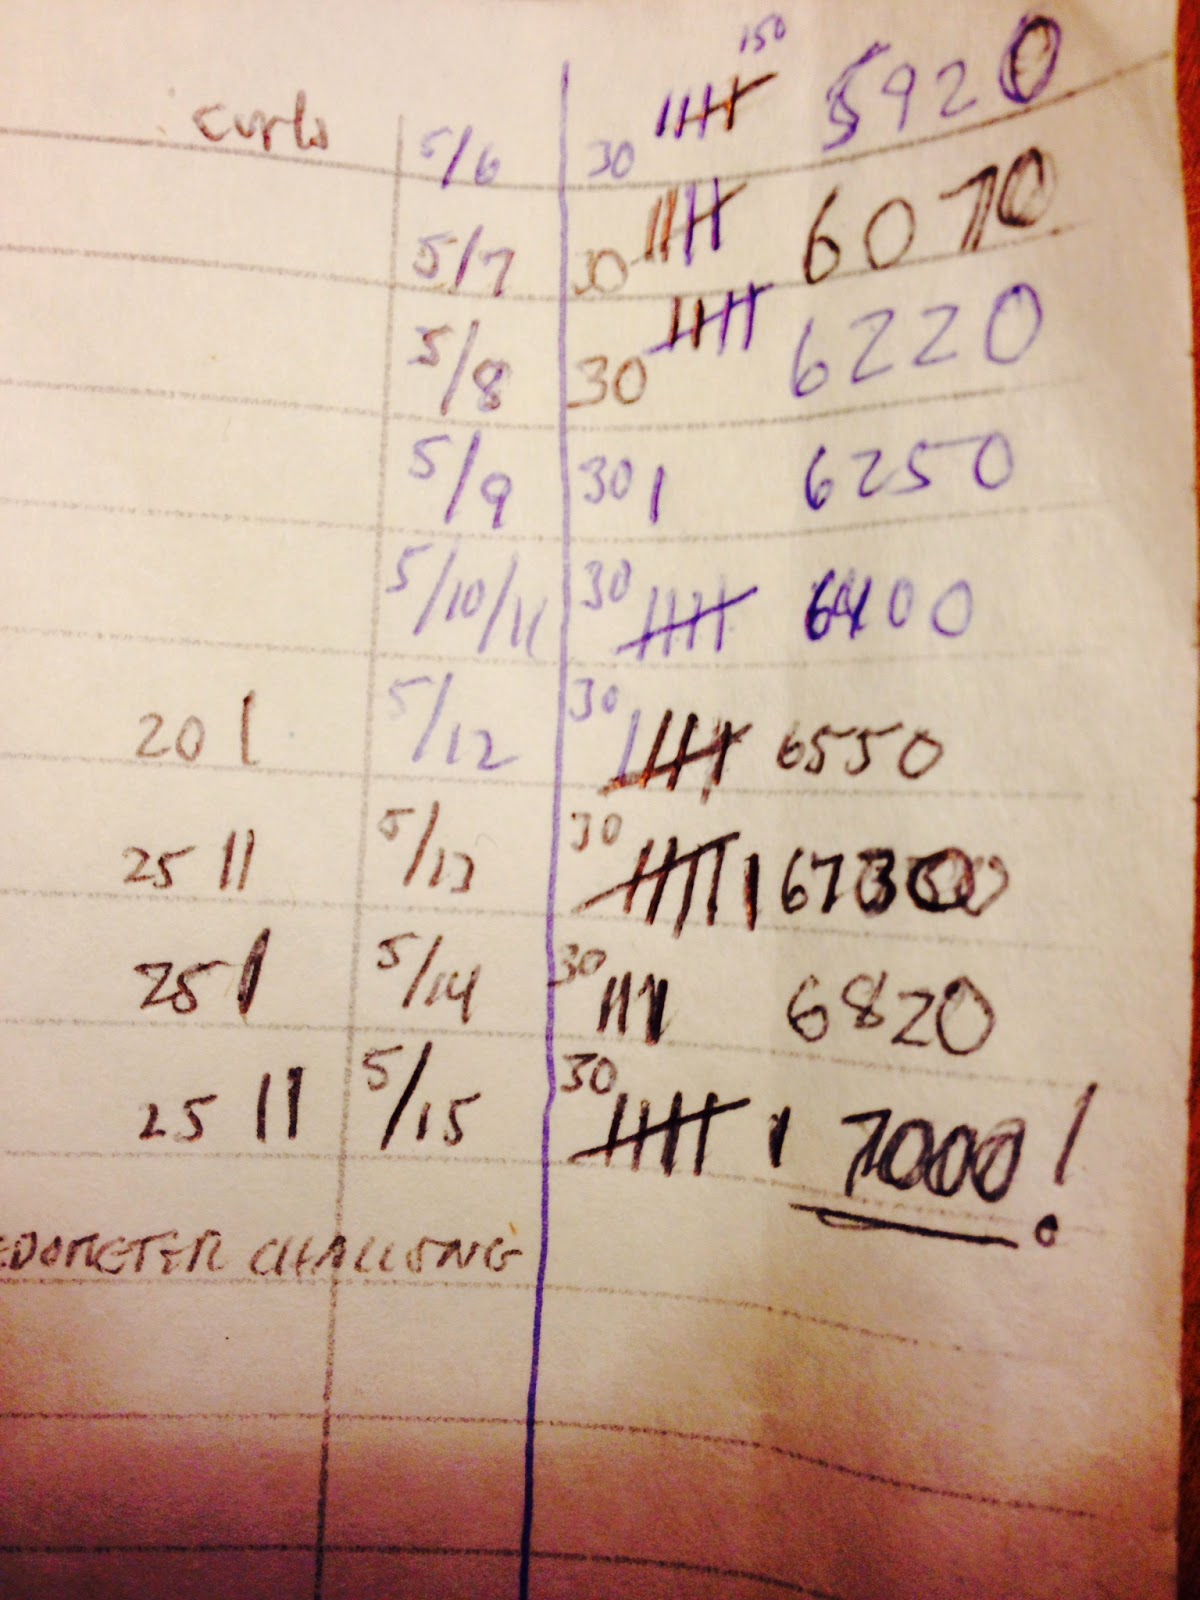 150
curls 5/6 30 5920
5/7 30 6070
5/8 30 6220
5/9 30 | 6250
5/10/11 30 6400
20 | 5/12 30 6550
25 || 5/13 30 | 67
25 | 5/14 30 |||| 6820
25 || 5/15 30 | 7000!
EDOMETER CHALLENG